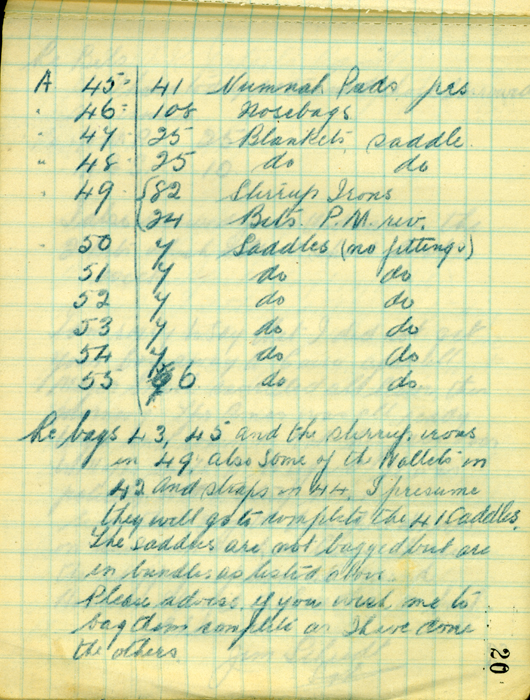 A 45 41 Numnah Pads prs
" 46 108 Nosebags
" 47 25 Blankets saddle
" 48 25 do do
" 49 {82 Stirrup Irons
24 Bits P.M. rev.
50 7 Saddles (no fittings)
51 7 do do
52 7 do do
53 7 do do
54 7 do do
55 6 do do
Re bags 43, 45 and the stirrup irons
in 49, also some of the Wallets in
42 and straps in 44. I presume
they will go to complete the 41 saddles.
The saddles are not bagged but are
in bundles as listed above.
Please advise if you wish me to
bag them complete as I have done
the others
20